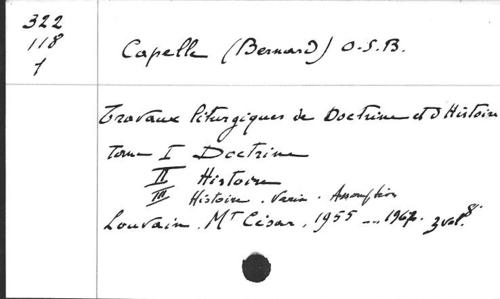 322
118
1
Capelle (Bernard) O.S.B.
Travaux liturgiques de Doctrine et d'Histoire
Tome I Doctrine
II Histoire
III Histoire. Varia. Assomption
Louvain. Mt César. 1955 ... 1967. 3 vol. 8°